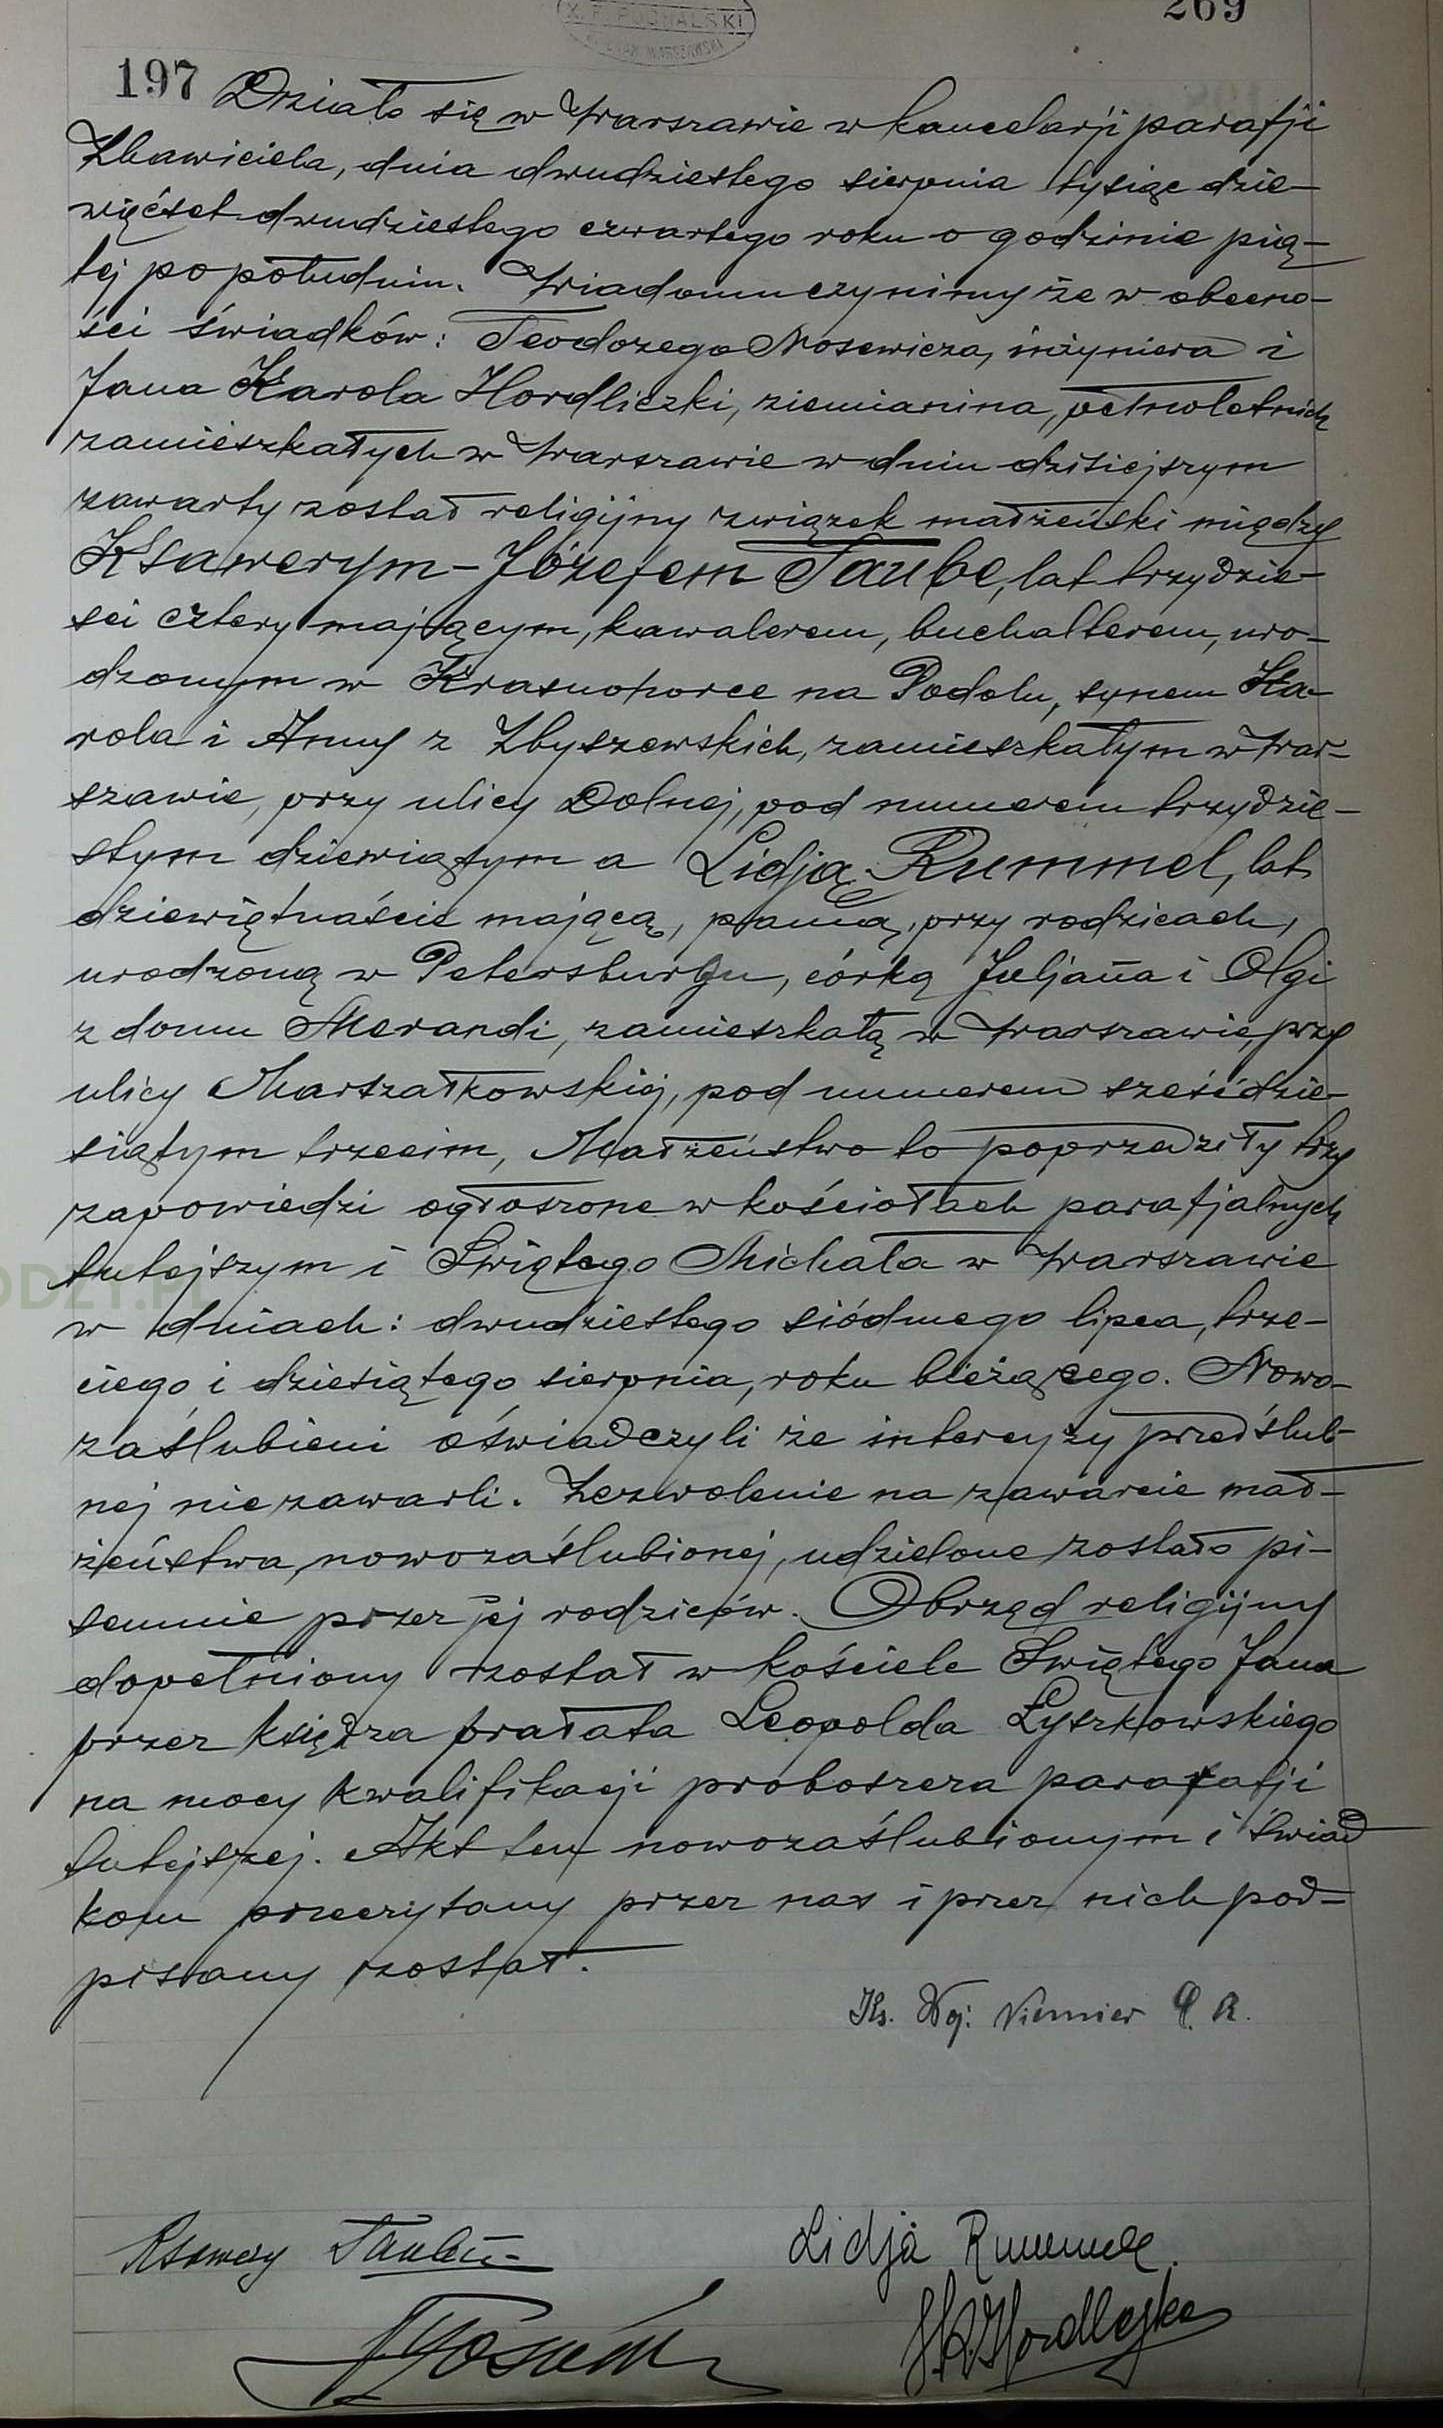 269
X. F. PUCHALSKI
197 Działo się w Warszawie w kancelarji parafji
Zbawiciela, dnia dwudziestego sierpnia tysiąc dzie-
więćset dwudziestego czwartego roku o godzinie pią-
tej po południu. Wiadomem czynimy że w obecno-
ści świadków: Teodozego Nosowicza, inżyniera i
Jana Karola Hordliczki, ziemianina, pełnoletnich
zamieszkałych w Warszawie w dniu dzisiejszym
zawarty został religijny związek małżeński między
Ksawerym-Józefem Taube, lat trzydzie-
ści cztery mającym, kawalerem, buchalterem, uro-
dzonym w Krasnohorce na Podolu, synem Ka-
rola i Anny z Zbyszewskich, zamieszkałym w War-
szawie, przy ulicy Dolnej, pod numerem trzydzie-
stym dziewiątym a Lidją Rummel, lat
dziewiętnaście mającą, panną, przy rodzicach,
urodzoną w Petersburgu, córką Juljana i Olgi
z domu Merandi, zamieszkałą w Warszawie, przy
ulicy Marszałkowskiej, pod numerem sześćdzie-
siątym trzecim, Małżeństwo to poprzedziły trzy
zapowiedzi ogłoszone w kościołach parafjalnych
tutejszym i Świętego Michała w Warszawie
w dniach: dwudziestego siódmego lipca, trze-
ciego i dziesiątego sierpnia, roku bieżącego. Nowo-
zaślubieni oświadczyli że intercyzy przedślub-
nej nie zawarli. Zezwolenie na zawarcie mał-
żeństwa nowozaślubionej, udzielone zostało pi-
semnie przez jej rodziców. Obrzęd religijny
dopełniony został w kościele Świętego Jana
przez księdza prałata Leopolda Łyszkowskiego
na mocy kwalifikacji proboszcza parafafji
tutejszej. Akt ten nowozaślubionym i świad
kom przeczytany przez nas i przez nich pod-
pisany został.
Ks. Niemier
Ksawery Taube
Lidja Rummel
JKHordliczka
ODZY.PL